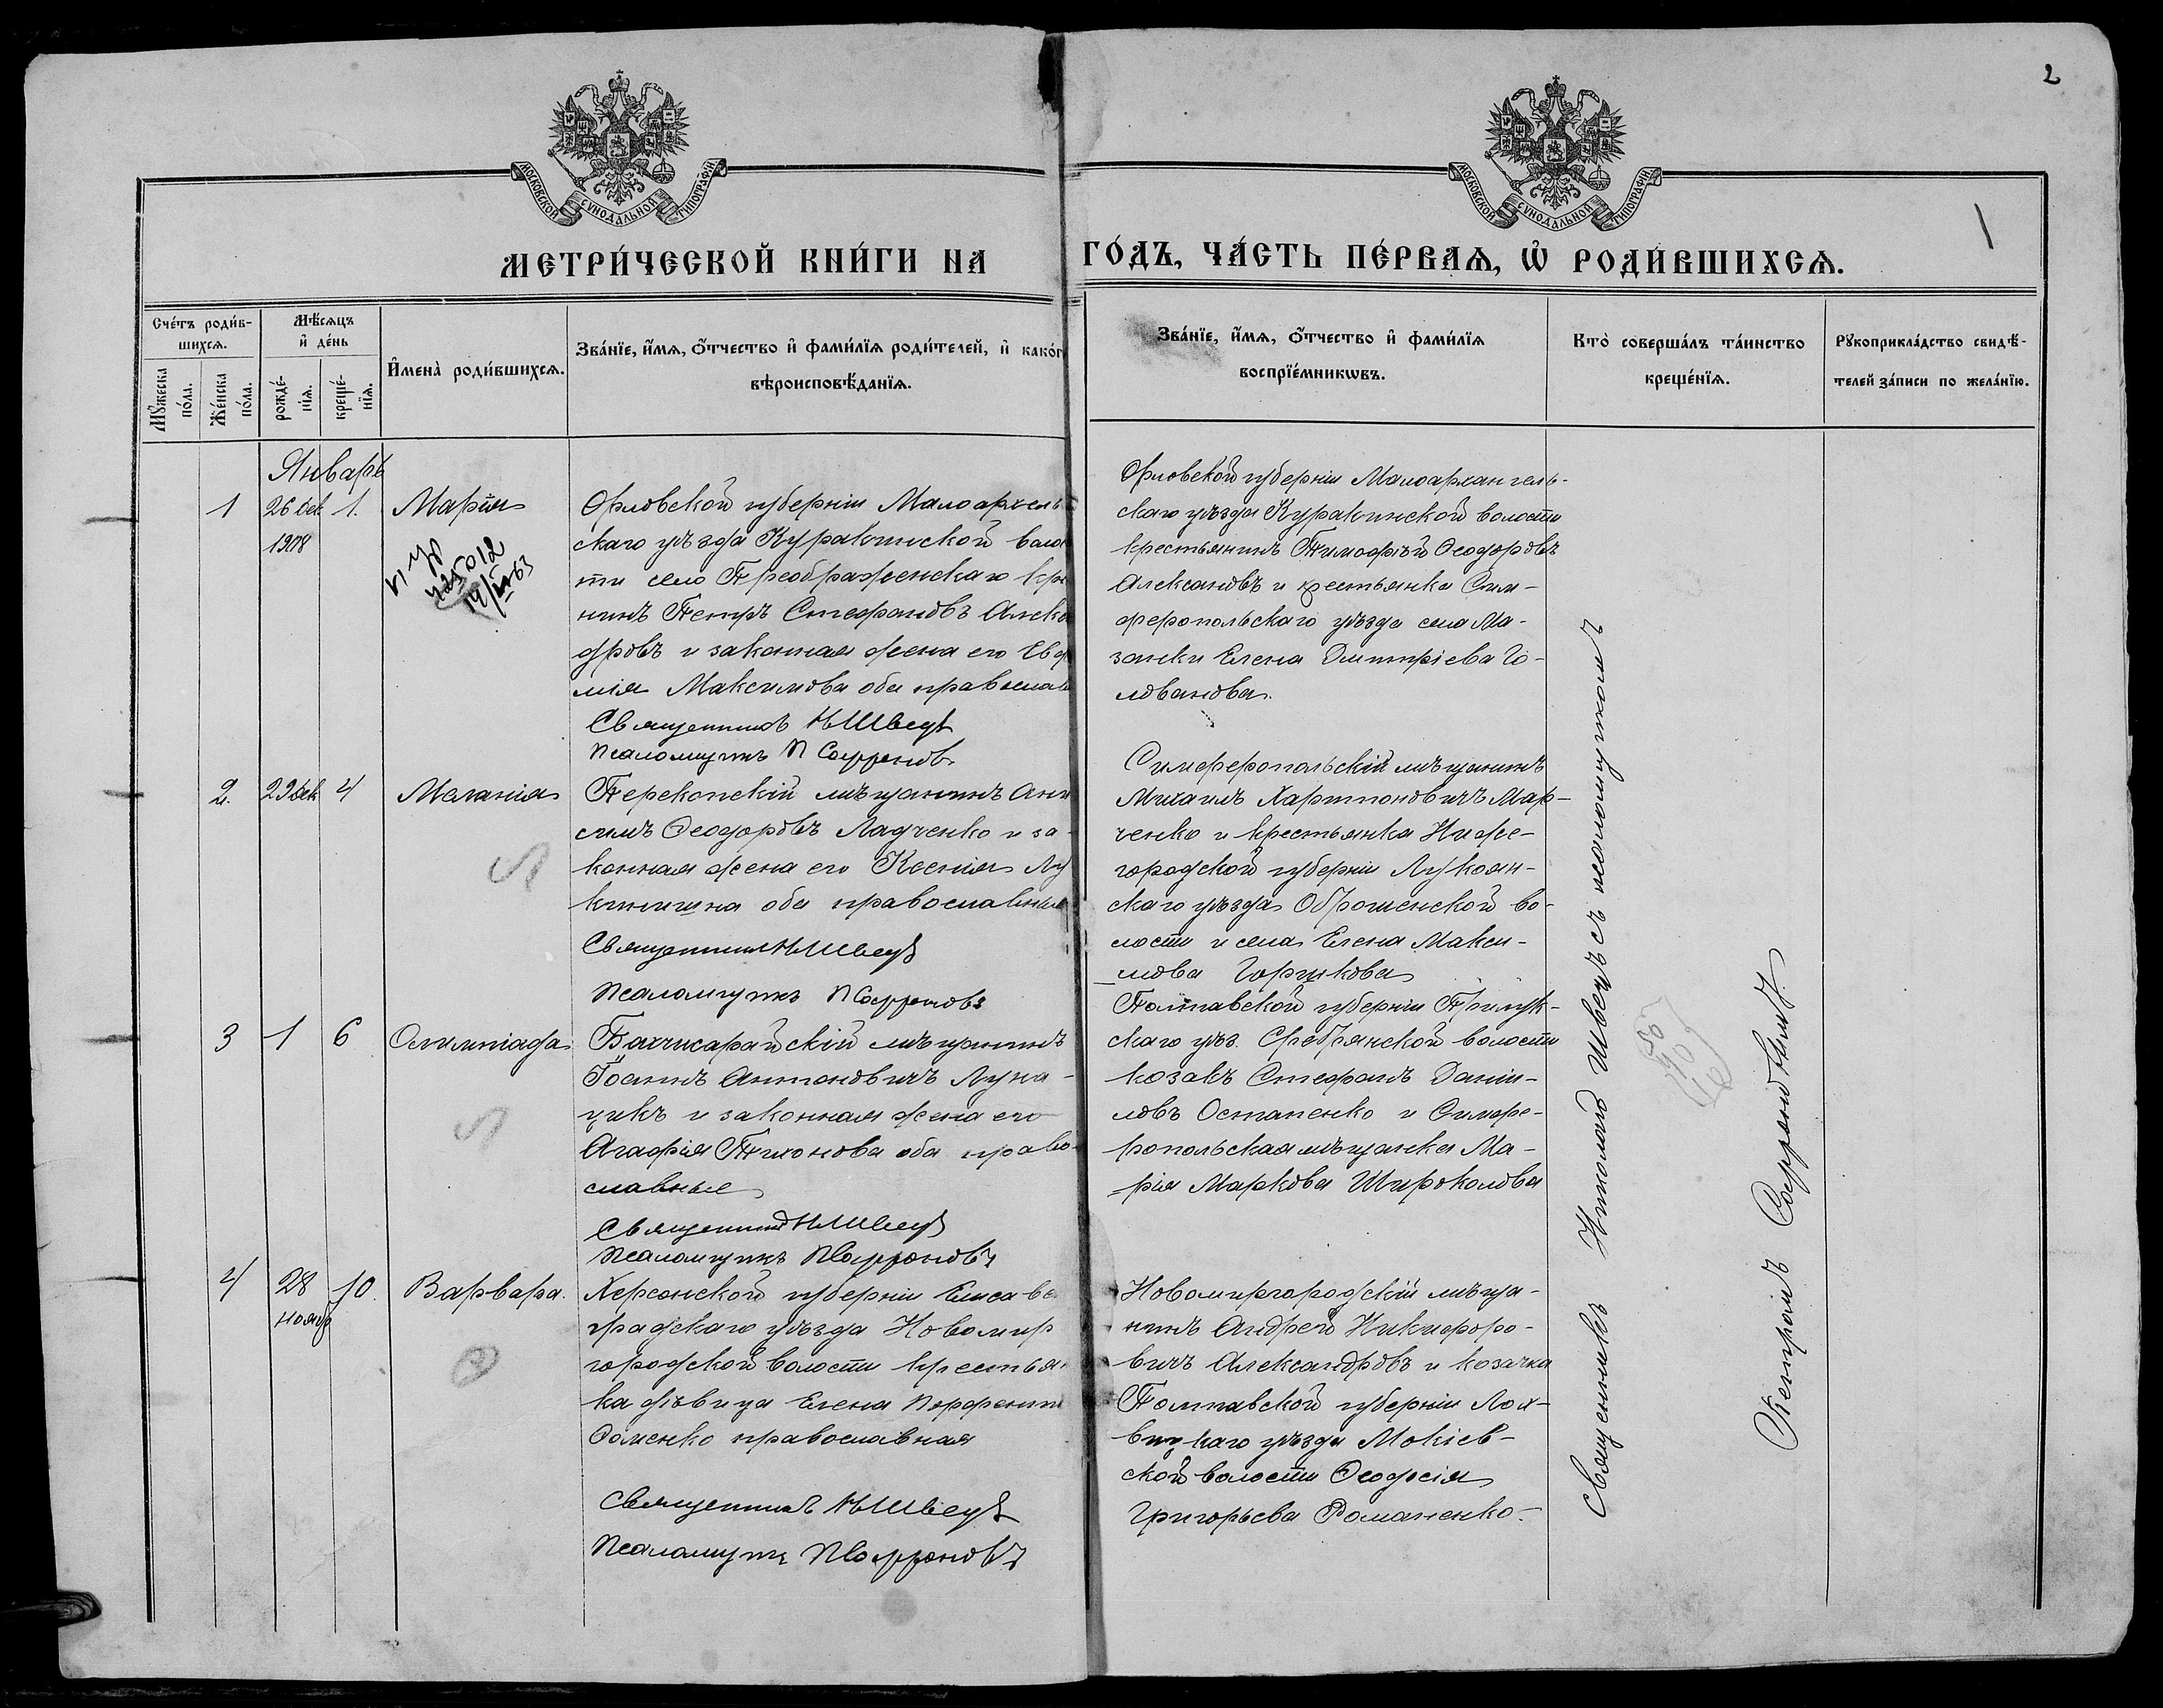 2
МОСКОВСКОЙ СУНОДАЛЬНОЙ ТИПОГРАФІИ
МОСКОВСКОЙ СУНОДАЛЬНОЙ ТИПОГРАФІИ
МЕТРИ́ЧЕСКОЙ КНИ́ГИ НА ГО́ДЪ, ЧА́СТЬ ПЕ́РВАѦ, Ѡ҆ РОДИ́ВШИХСѦ.
Сче́тъ роди́в-
шихсѧ.
Мꙋ́жеска по́ла.
Же́нска по́ла.
Мѣ́сѧцъ
и҆ де́нь
рожде́-
нїѧ.
креще́-
нїѧ.
И҆мена̀ роди́вшихсѧ.
Зва́нїе, и҆́мѧ, ѻ҆́тчество и҆ фами́лїѧ роди́телей, и҆ како́г
вѣроисповѣ́данїѧ.
Зва́нїе, и҆́мѧ, ѻ҆́тчество и҆ фами́лїѧ
воспрїе́мникѡвъ.
Кто̀ соверша́лъ та́инство
креще́нїѧ.
Рꙋкоприкла́дство свидѣ́-
телей за́писи по жела́нїю.
Январь
1 26 дек 1. Марія
1908
Орловской губерніи Малоархель
скаго уѣзда Куракинской волос
ти село Преображенскаго кре
нинъ Петръ Стефановъ Алекса
дровъ и законная жена его Евфи
мія Максимова оба православ
Священникъ Н Швецъ
Псаломщикъ П Софроновъ
Орловской губерніи Малоархангель-
скаго уѣзда Куракинской волости
крестьянинъ Тимофей Ѳеодоровъ
Алексановъ и крестьянка Сим-
феропольскаго уѣзда села Ма-
занки Елена Димитріева Го-
лованова.
2. 29 дек 4 Меланія
Перекопскій мѣщанинъ Ани
симъ Ѳеодоровъ Ладченко и за-
конная жена его Ксенія Лу
кинична оба православные
Священникъ Н Швецъ
Псаломщикъ П Софроновъ
Симферопольскій мѣщанинъ
Михаилъ Харитоновичъ Мар-
ченко и крестьянка Ниже-
городской губерніи Лукоян-
скаго уѣзда Оброченской во-
лости и села Елена Макси-
мова Горшкова
3 1 6 Олимпіада
Бахчисарайскій мѣщанинъ
Іоаннъ Антоновичъ Луна-
цикъ и законная жена его
Агафія Тихонова оба право-
славные
Священникъ Н Швецъ
Псаломщикъ П Софроновъ
Полтавской губерніи Прилук-
скаго уѣз. Сребрянской волости
козакъ Стефанъ Даніи-
ловъ Остапенко и Симфе-
ропольская мѣщанка Ма-
рія Маркова Широколова
4 28 10. Варвара.
нояб
Херсонской губерніи Елисаве
градскаго уѣзда Новомир
городской волости крестьян
ка дѣвица Елена Порфе
Ѳоменко православная
Священникъ Н Швецъ
Псаломщикъ П Софроновъ
Новомиргородскій мѣща-
нинъ Андрей Никифоро-
вичъ Александровъ и козачка
Полтавской губерніи Лох-
вицкаго уѣзда Мокіев-
ской волости Ѳеодосія
Григорьева Романенко.
Священникъ Николай Швецъ съ псаломщикомъ
Петромъ Софроновымъ.